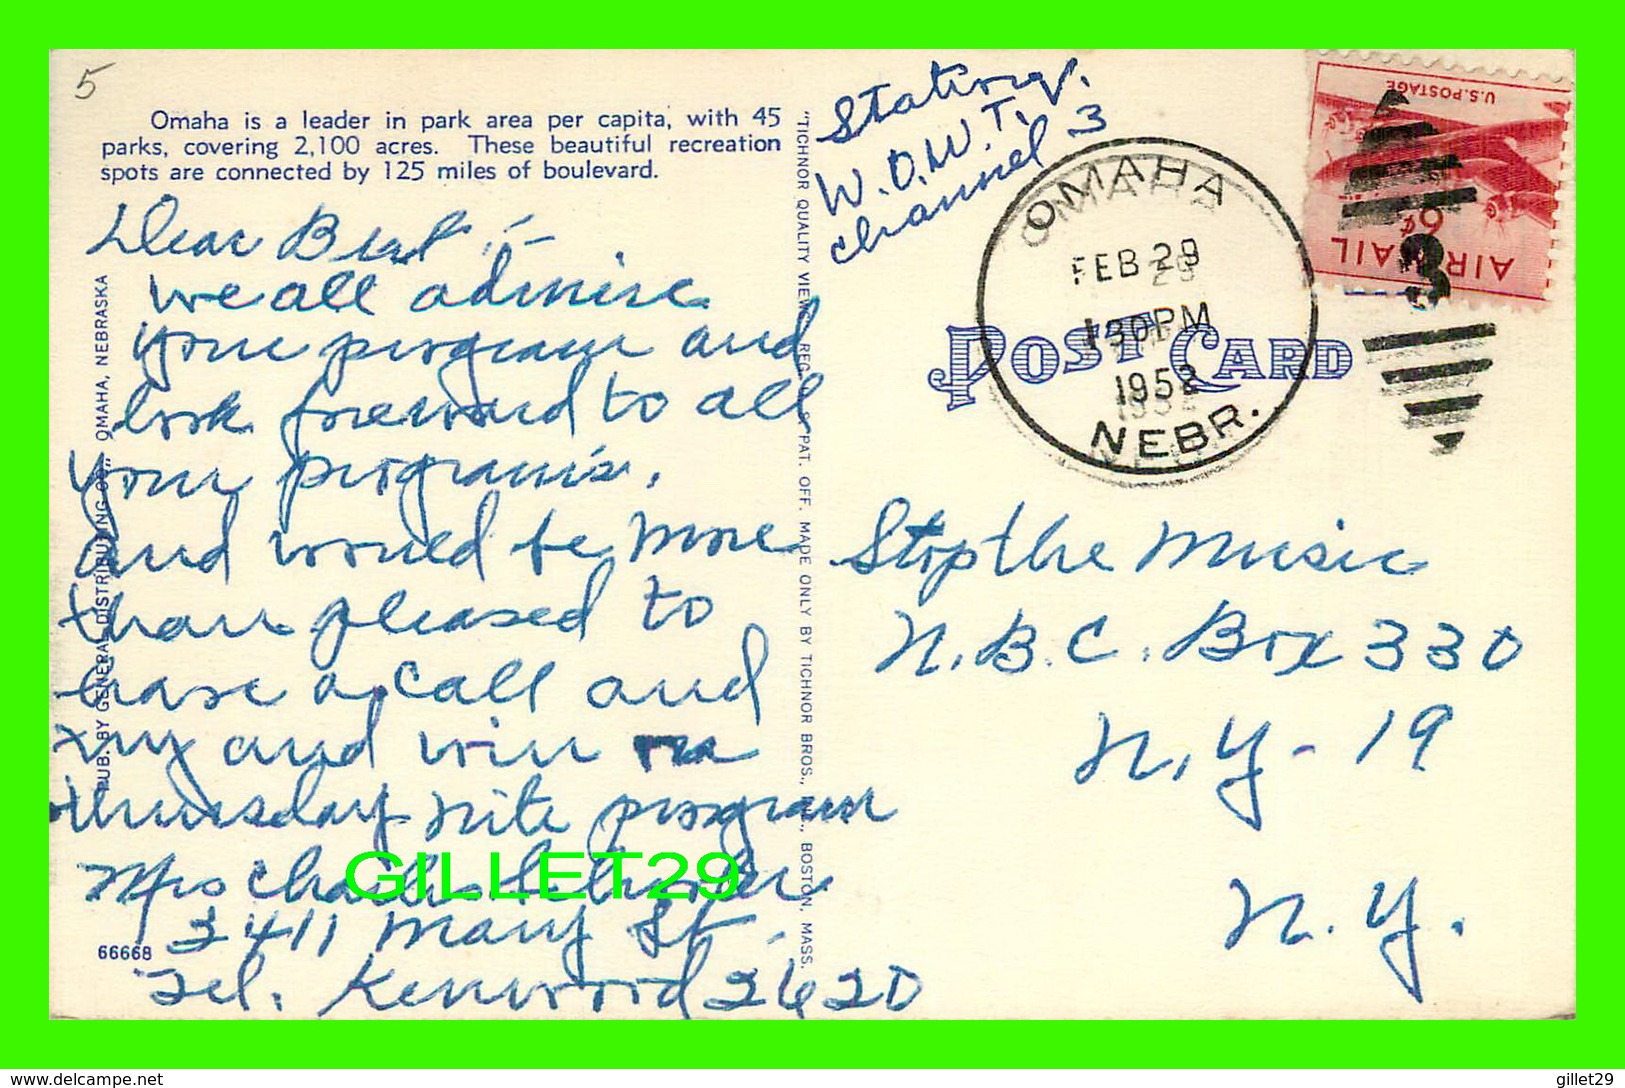 5
Omaha is a leader in park area per capita, with 45
parks, covering 2,100 acres. These beautiful recreation
spots are connected by 125 miles of boulevard.
Dear Bert:-
we all admire
your program and
look foreward to all
your programs.
and would be more
than pleased to
have a call and
try and win
thursday nite program
Mrs Charles
2411 Mary St.
Tel. Kenwood 2620
66668
PUB. BY GENERAL DISTRIBUTING CO., OMAHA, NEBRASKA
"TICHNOR QUALITY VIEWS" REG. U. S. PAT. OFF. MADE ONLY BY TICHNOR BROS., INC., BOSTON, MASS.
Station.
W.O.W.T.
channel 3
OMAHA
FEB 29
130PM
1952
NEBR.
U.S. POSTAGE
6¢
AIR MAIL
3
POST CARD
Stop the Music
N.B.C. Box 330
N.Y-19
N.Y.
GILLET29
http://www.delcampe.net
gillet29